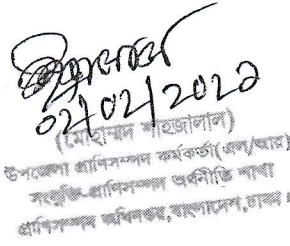 ০২/০২/২০২১
(মোহাম্মদ শাহজালাল)
উপজেলা প্রাণিসম্পদ কর্মকর্তা(এল/আর)
সংযুক্তি-প্রাণিসম্পদ অর্থনীতি শাখা
প্রাণিসম্পদ অধিদপ্তর,বাংলাদেশ,ঢাকা।